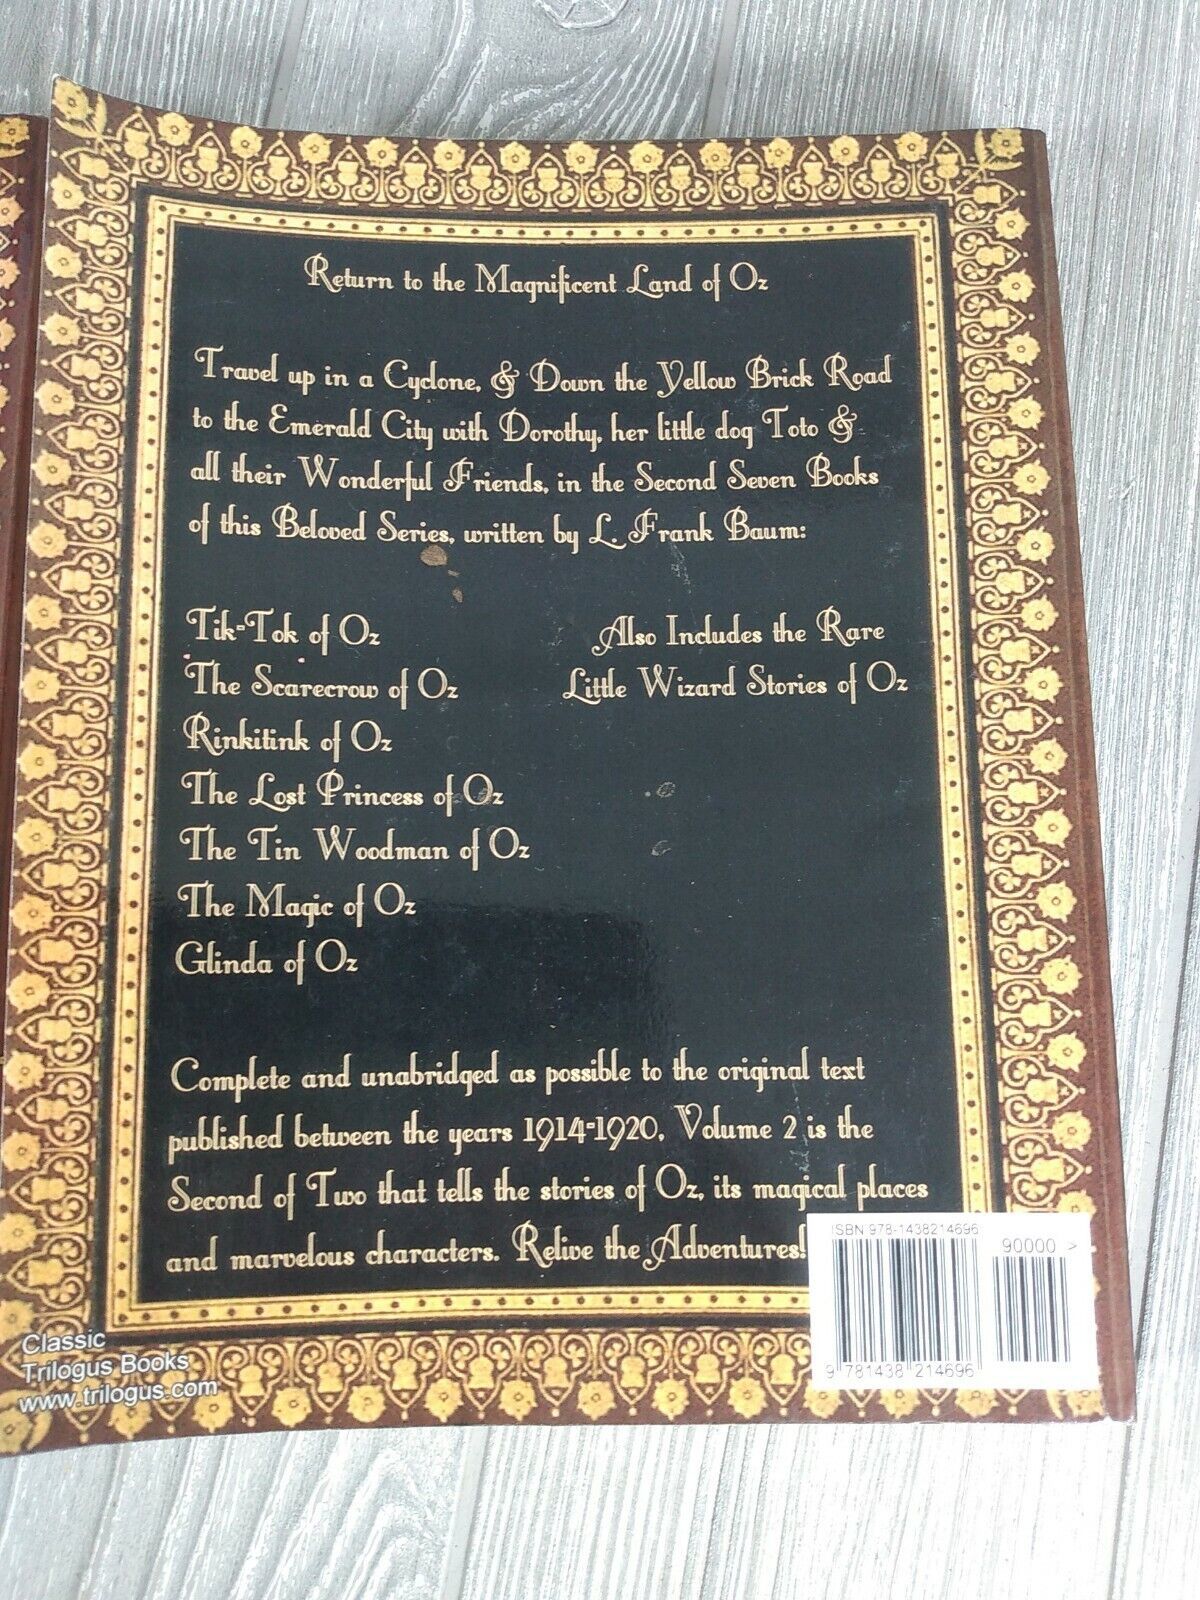 Return to the Magnificent Land of Oz
Travel up in a Cyclone, & Down the Yellow Brick Road
to the Emerald City with Dorothy, her little dog Toto &
all their Wonderful Friends, in the Second Seven Books
of this Beloved Series, written by L. Frank Baum:
Tik-Tok of Oz
The Scarecrow of Oz
Rinkitink of Oz
The Lost Princess of Oz
The Tin Woodman of Oz
The Magic of Oz
Glinda of Oz
Also Includes the Rare
Little Wizard Stories of Oz
Complete and unabridged as possible to the original text
published between the years 1914-1920, Volume 2 is the
Second of Two that tells the stories of Oz, its magical places
and marvelous characters. Relive the Adventures!
Classic
Trilogus Books
www.trilogus.com
ISBN 978-1438214696
90000 >
9 781438 214696